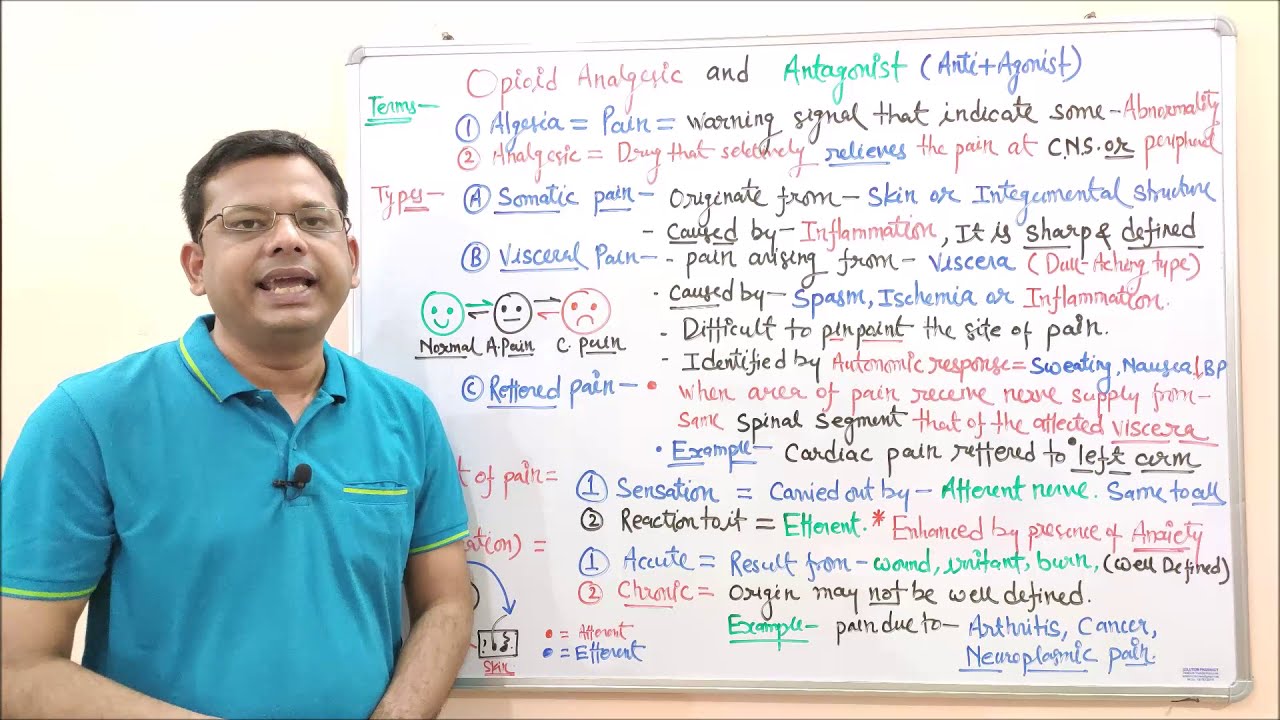 Opioid Analgesic and Antagonist (Anti+Agonist)
Terms—
① Algesia = Pain = warning signal that indicate some - Abnormality
② Analgesic = Drug that selectively relieves the pain at C.N.S. or peripheral
Types— Ⓐ Somatic pain — Originate from — Skin or Integumental structure
- Caused by — Inflammation, It is sharp & defined
Ⓑ Visceral Pain — - pain arising from — viscera (Dull-Aching type)
• Caused by — Spasm, Ischemia or Inflammation.
- Difficult to pinpoint the site of pain.
Normal A.Pain C. pain
- Identified by Autonomic response = Sweating, Nausea, ↓BP
Ⓒ Reffered pain — • when area of pain receive nerve supply from—
same spinal segment that of the affected viscera
• Example — Cardiac pain reffered to left arm
of pain = ① Sensation = Carried out by — Afferent nerve. Same to all
② Reaction to it = Efferent. * Enhanced by presence of Anxiety
ation) = ① Accute = Result from — wound, irritant, burn, (well Defined)
② Chronic = Origin may not be well defined.
Example — pain due to — Arthritis, Cancer,
Neuroplasmic pain.
• = Afferent
• = Efferent
Skin